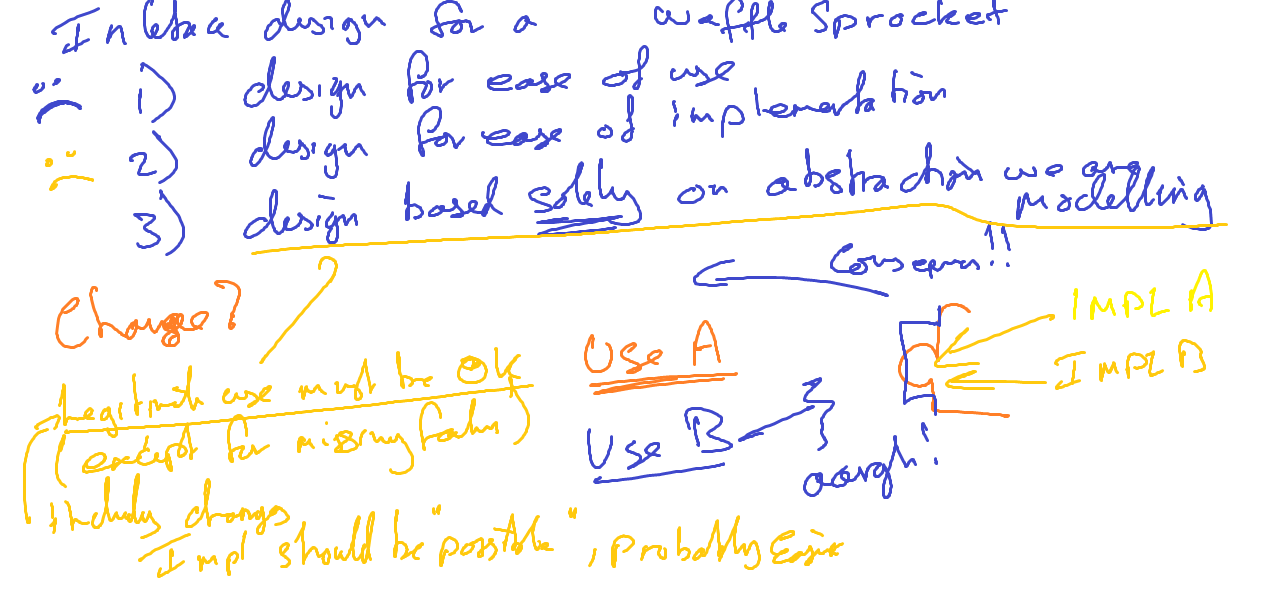 Interface design for a waffle sprocket
1) design for ease of use
2) design for ease of implementation
3) design based solely on abstraction we are modelling
Consensus!!
Change?
IMPL A
Use A
IMPL B
Legitimate use must be OK
(except for missing
Use B
aargh!
including changes
Impl should be "possible", probably easier